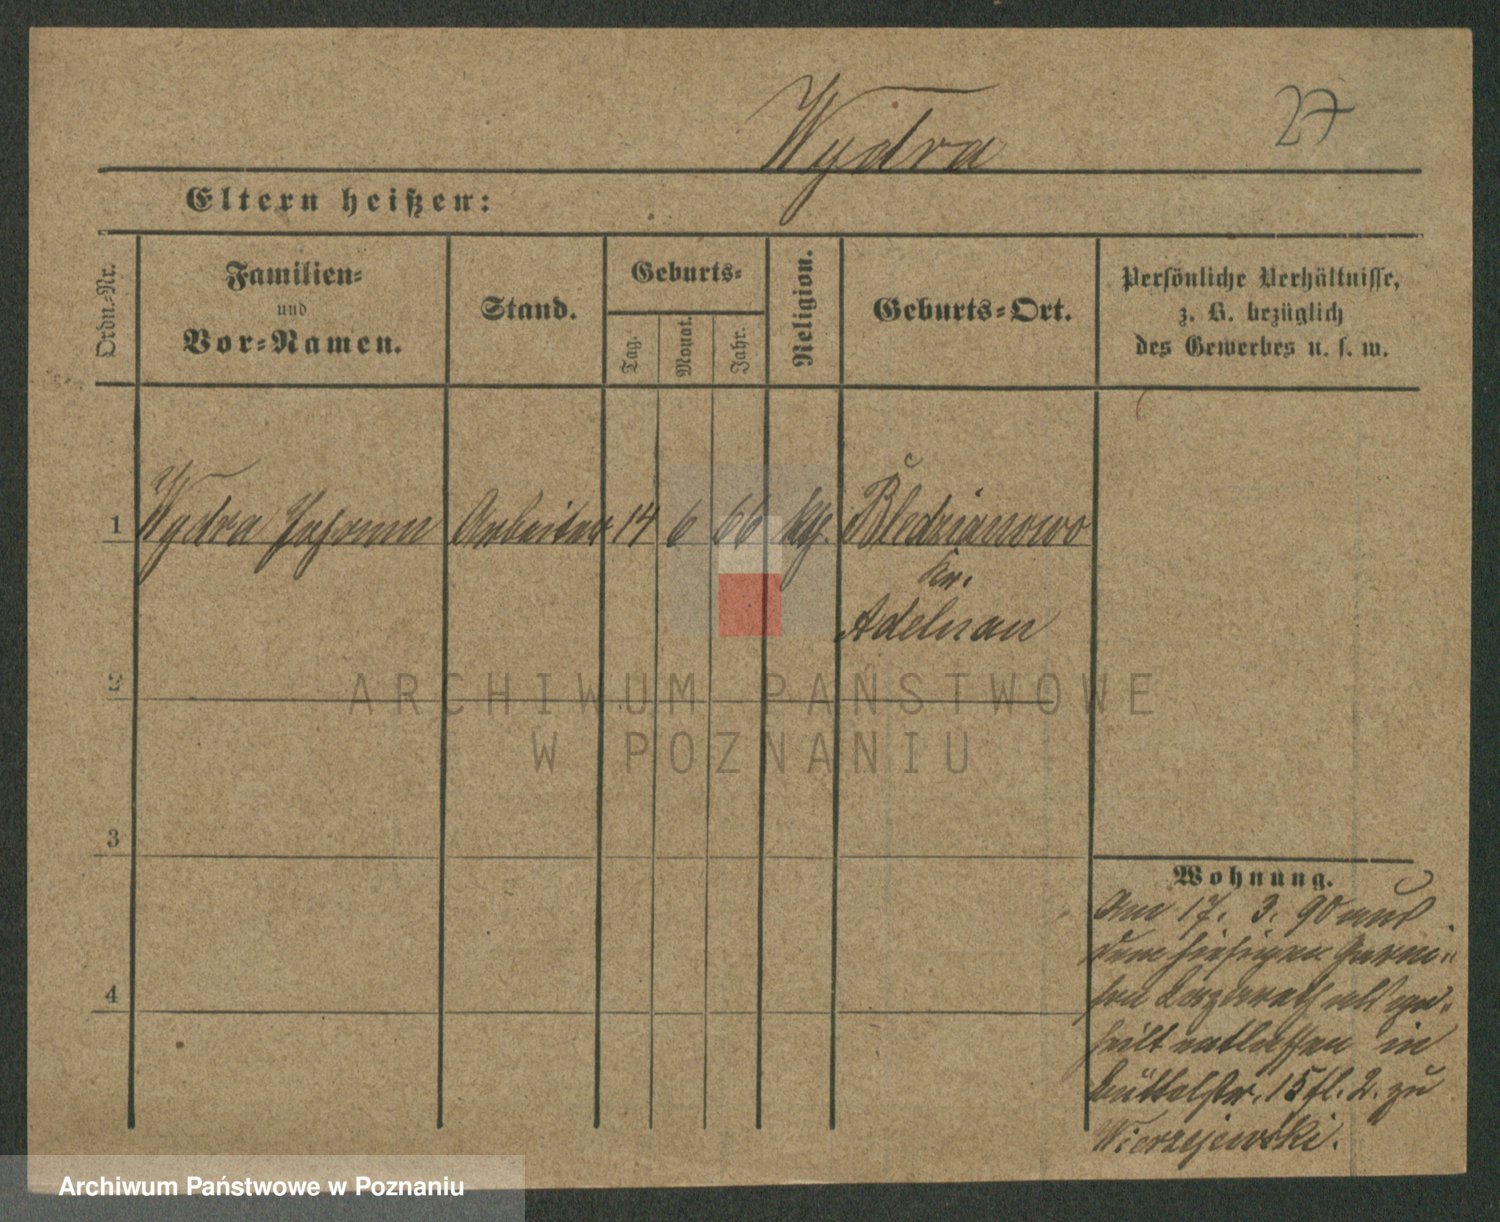 Wydra
27
Eltern heißen:
Ordn.-Nr.
Familien-
und
Vor-Namen.
Stand.
Geburts-
Tag.
Monat.
Jahr.
Religion.
Geburts-Ort.
Persönliche Verhältnisse,
z. B. bezüglich
des Gewerbes u. s. w.
1 Wydra Arbeiter 14 6 66 kth. Błedzianowo
Kr.
Adelnau
2
3
4
Wohnung.
Am 17. 3. 90 aus
dem hiesigen Garni-
son Lazareth als ge-
heilt entlassen in
Büttelstr. 15 fl. 2. zu
Wierzejewski.
ARCHIWUM PAŃSTWOWE
W POZNANIU
Archiwum Państwowe w Poznaniu